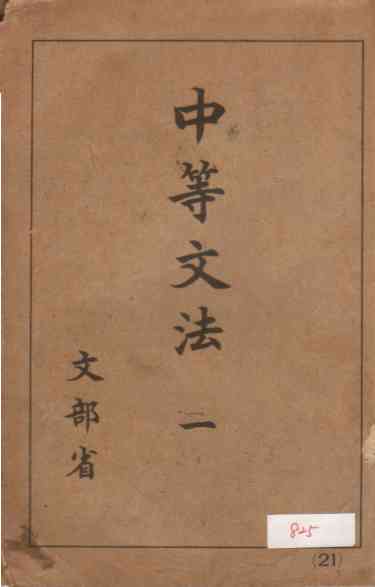 中等文法 二
文部省
825
(21)